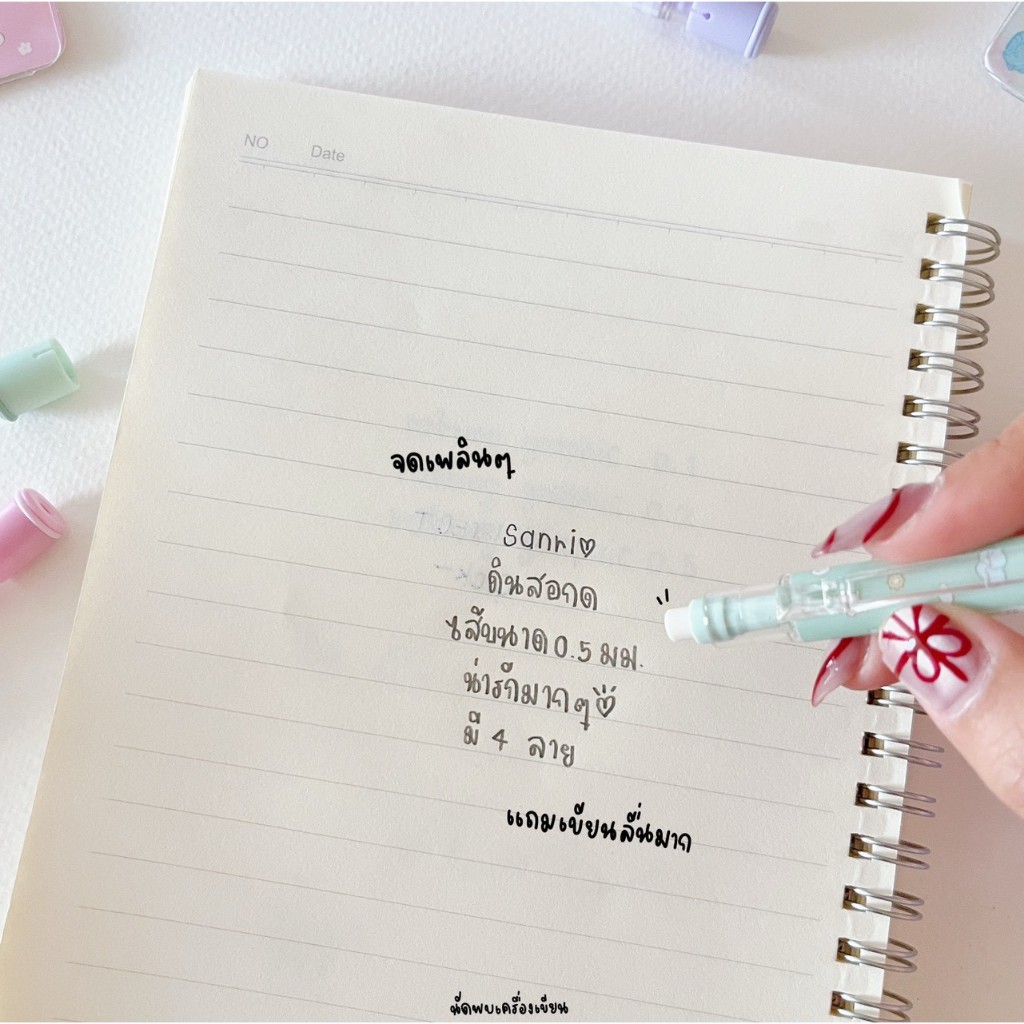 NO Date
จดเพลินๆ
Sanrio
ดินสอกด
ไส้ขนาด 0.5 มม.
น่ารักมากๆ
มี 4 ลาย
แถมเขียนลื่นมาก
นัดพบเครื่องเขียน